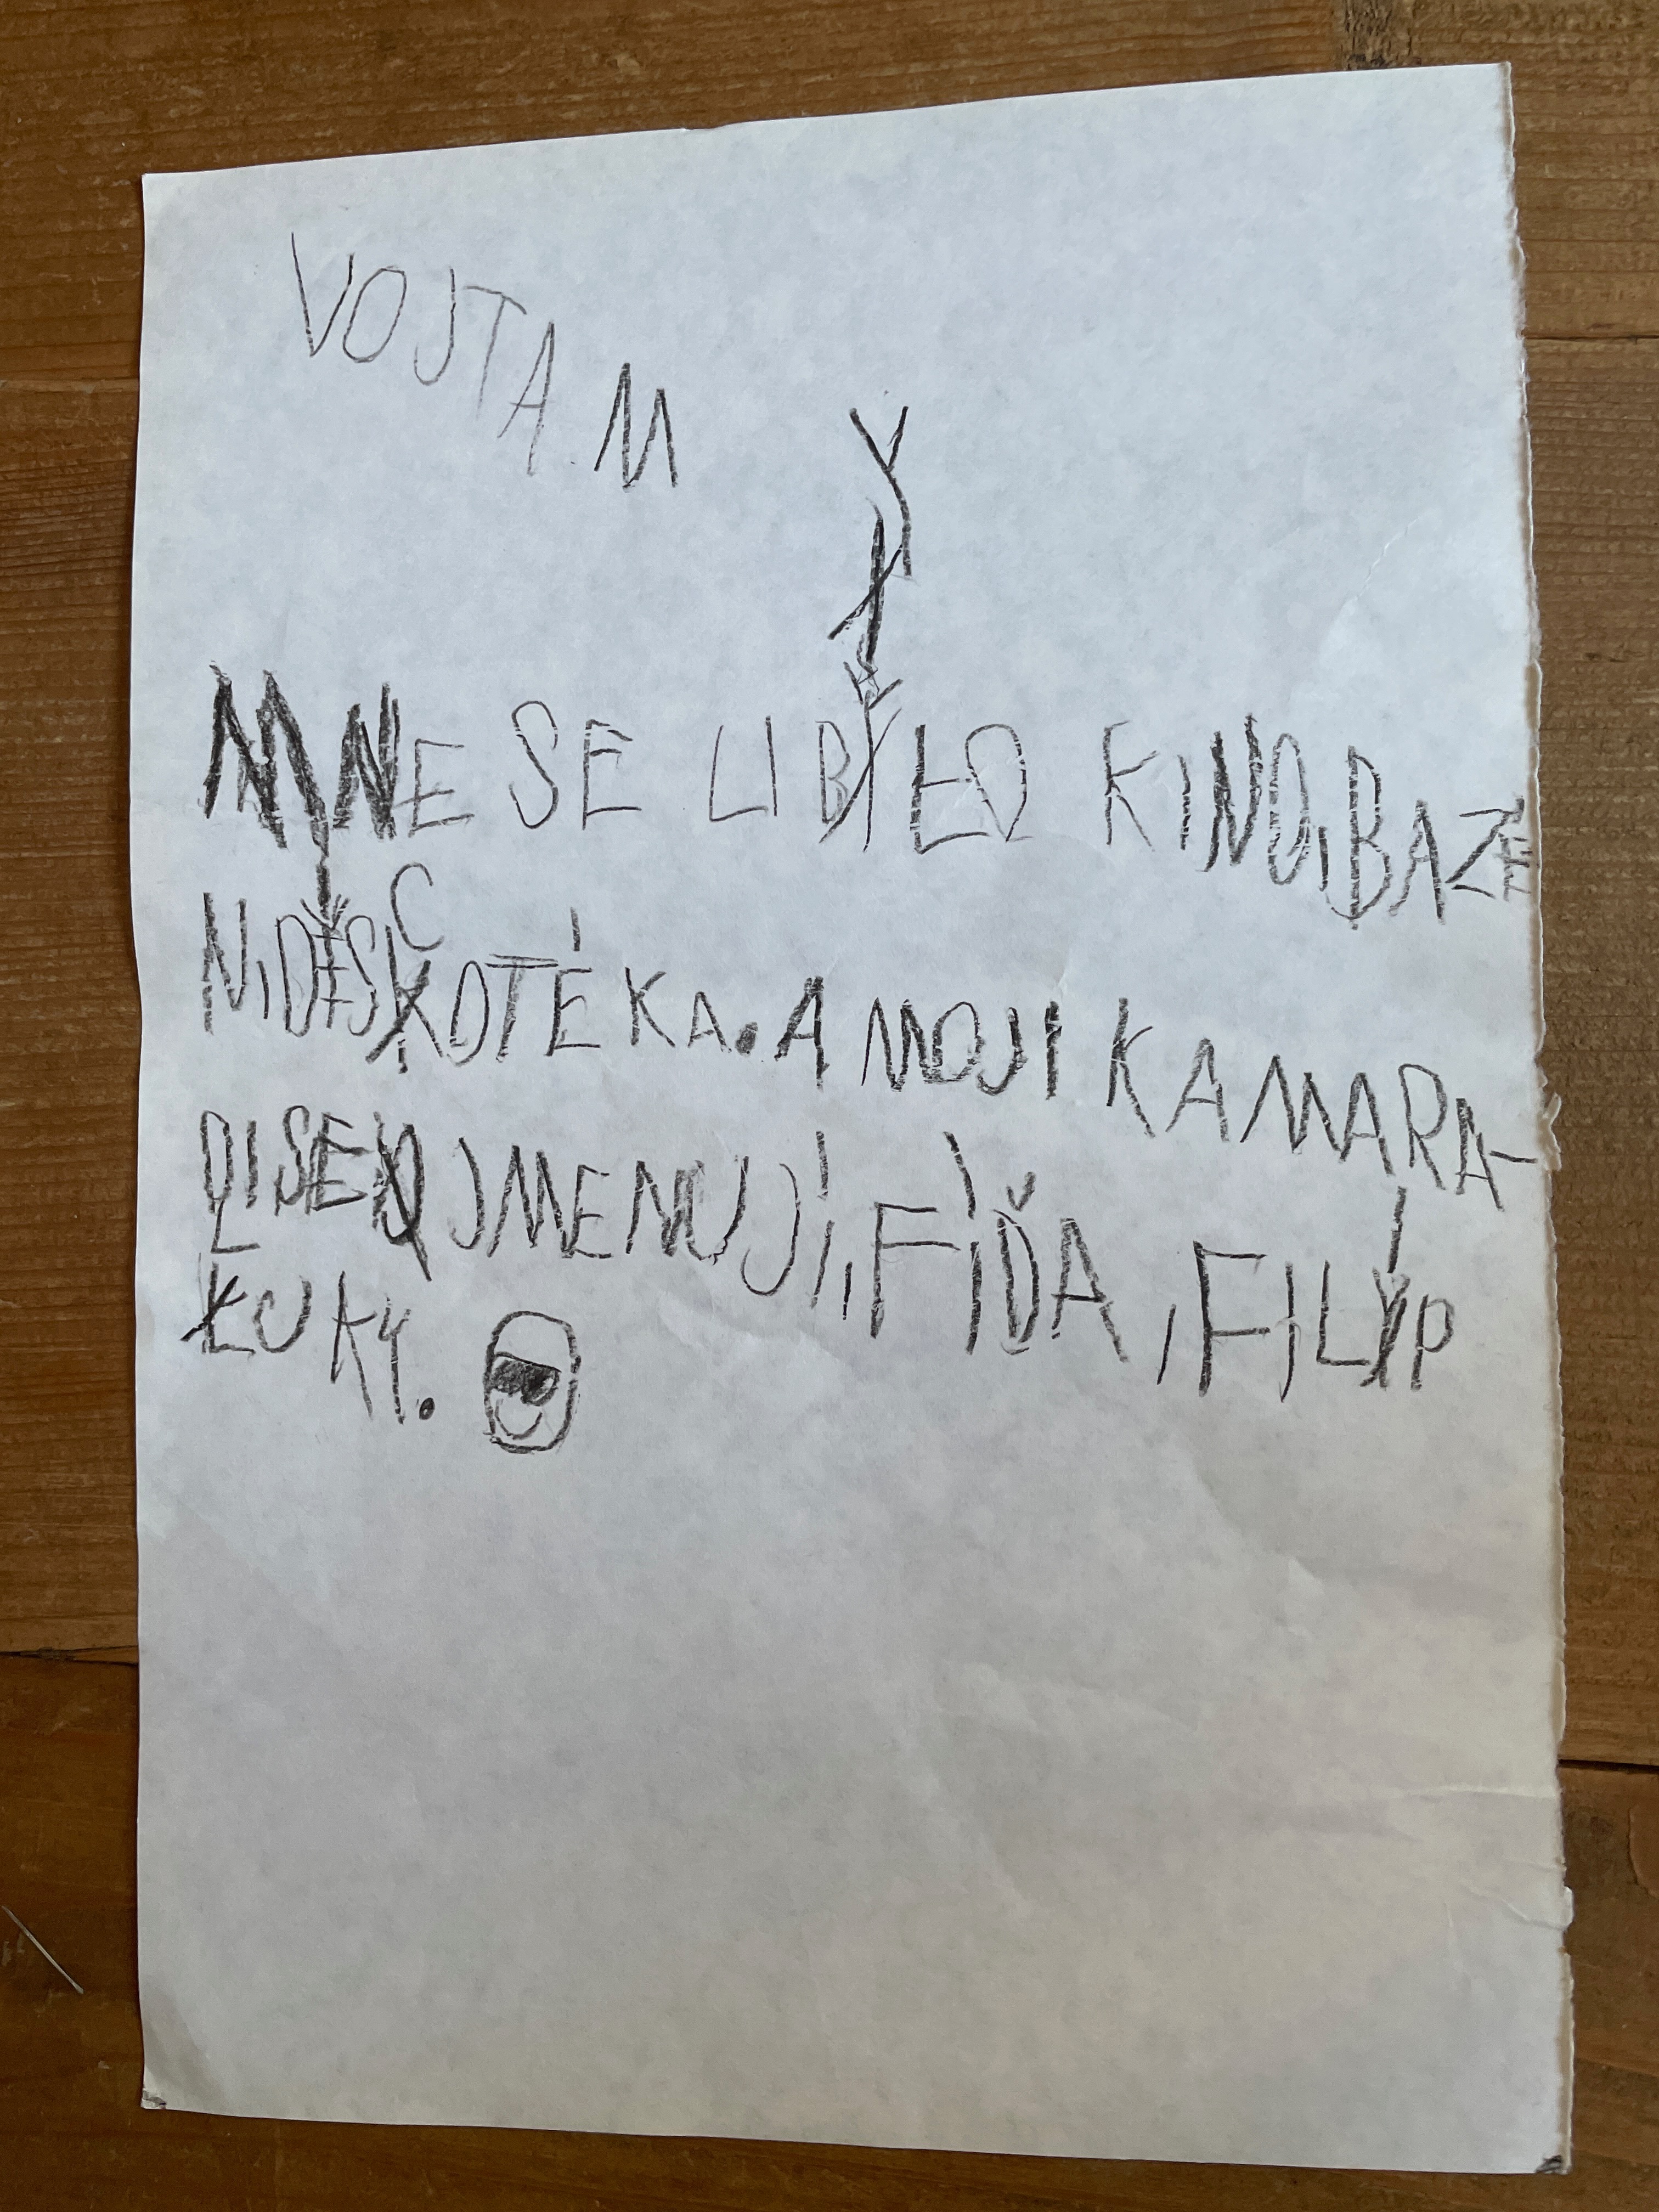 VOJTA.M
MNE SE LIBYLO KINO,BAZE
N,DISCOTÉKA. A MOJI KAMARA-
DI SE JMENUJÍ,FÍĎA,FILIP
LUKY.